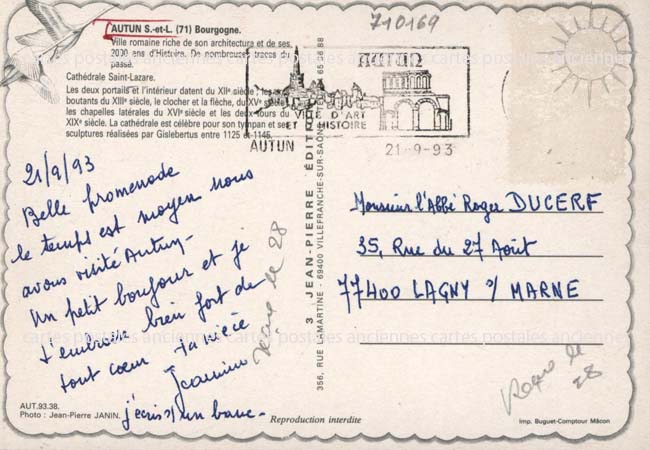 710169
AUTUN S.-et-L. (71) Bourgogne.
Ville romaine riche de son architecture et de ses
2000 ans d'Histoire. De nombreuses traces du
passé.
Cathédrale Saint-Lazare.
Les deux portails et l'intérieur datent du XIIe siècle ; les arcs-
boutants du XIIIe siècle, le clocher et la flèche, du XVe siècle
les chapelles latérales du XVIe siècle et les deux tours du
XIXe siècle. La cathédrale est célèbre pour son tympan et ses
sculptures réalisées par Gislebertus entre 1125 et 1145.
AUTUN
VILLE D'ART
ET HISTOIRE
AUTUN
21-9-93
21/9/93
Belle promenade
le temps est moyen nous
avons visité Autun-
Un petit bonjour et je
t'embrasse bien fort de
tout cœur ta nièce
Jeannine
j'écris s/ un banc-
Reçue le 28
356, RUE LAMARTINE - 69400 VILLEFRANCHE-SUR-SAÔNE
JEAN-PIERRE - ÉDIT
65 56 88
Monsieur l'Abbé Roger DUCERF
35, Rue du 27 Août
77400 LAGNY s/ MARNE
Reçue le
28
AUT.93.38.
Photo : Jean-Pierre JANIN.
Reproduction interdite
Imp. Buguet-Comptour Mâcon
cartes postales anciennes cartes postales anciennes cartes postales anciennes